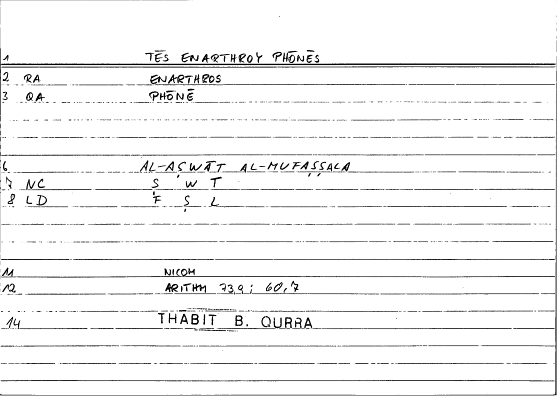 1 TĒS ENARTHROY PHŌNĒS
2 RA ENARTHROS
3 QA PHŌNĒ
6 AL-AṢWĀT AL-MUFAṢṢALA
7 NC Ṣ W T
8 LD F Ṣ L
11 NICOM
12 ARITHM 73,9; 60,7
14 THĀBIT B. QURRA